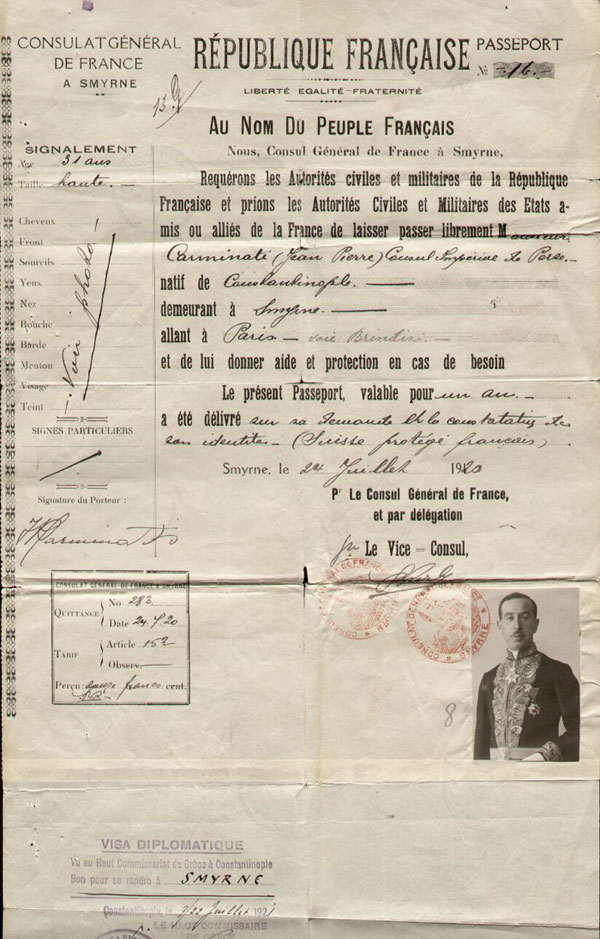 CONSULAT GÉNÉRAL
DE FRANCE
A SMYRNE
RÉPUBLIQUE FRANÇAISE
LIBERTÉ EGALITÉ FRATERNITÉ
PASSEPORT
No 16.
AU NOM DU PEUPLE FRANÇAIS
Nous, Consul Général de France à Smyrne,
Requérons les Autorités civiles et militaires de la République
Française et prions les Autorités Civiles et Militaires des Etats a-
mis ou alliés de la France de laisser passer librement Monsieur
Carminati (Jean Pierre) Consul Impérial de Perse.
natif de Constantinople.
demeurant à Smyrne.
allant à Paris - voie Brindisi.
et de lui donner aide et protection en cas de besoin
Le présent Passeport, valable pour un an.
a été délivré sur sa demande et la constatation de
son identité - (Suisse protégé français).
Smyrne, le 24 Juillet 1920
Pr Le Consul Général de France,
et par délégation
Le Vice - Consul,
SIGNALEMENT
31 ans
Taille haute.
Cheveux
Front
Sourcils
Yeux
Nez
Bouche
Barde
Menton
Visage
Teint
Voir photo
SIGNES PARTICULIERS
Signature du Porteur :
CONSULAT GÉNÉRAL DE FRANCE A SMYRNE
QUITTANCE
No 283
Date 24.7.20
TARIF
Article 152
Observ.
Perçu: francs cent.
CONSULAT GÉNÉRAL DE FRANCE
SMYRNE
8
VISA DIPLOMATIQUE
Vu au Haut Commissariat de Grèce à Constantinople
Bon pour se rendre à SMYRNE
Constantinople, le 9/22 Juillet 1921
LE HAUT COMMISSAIRE